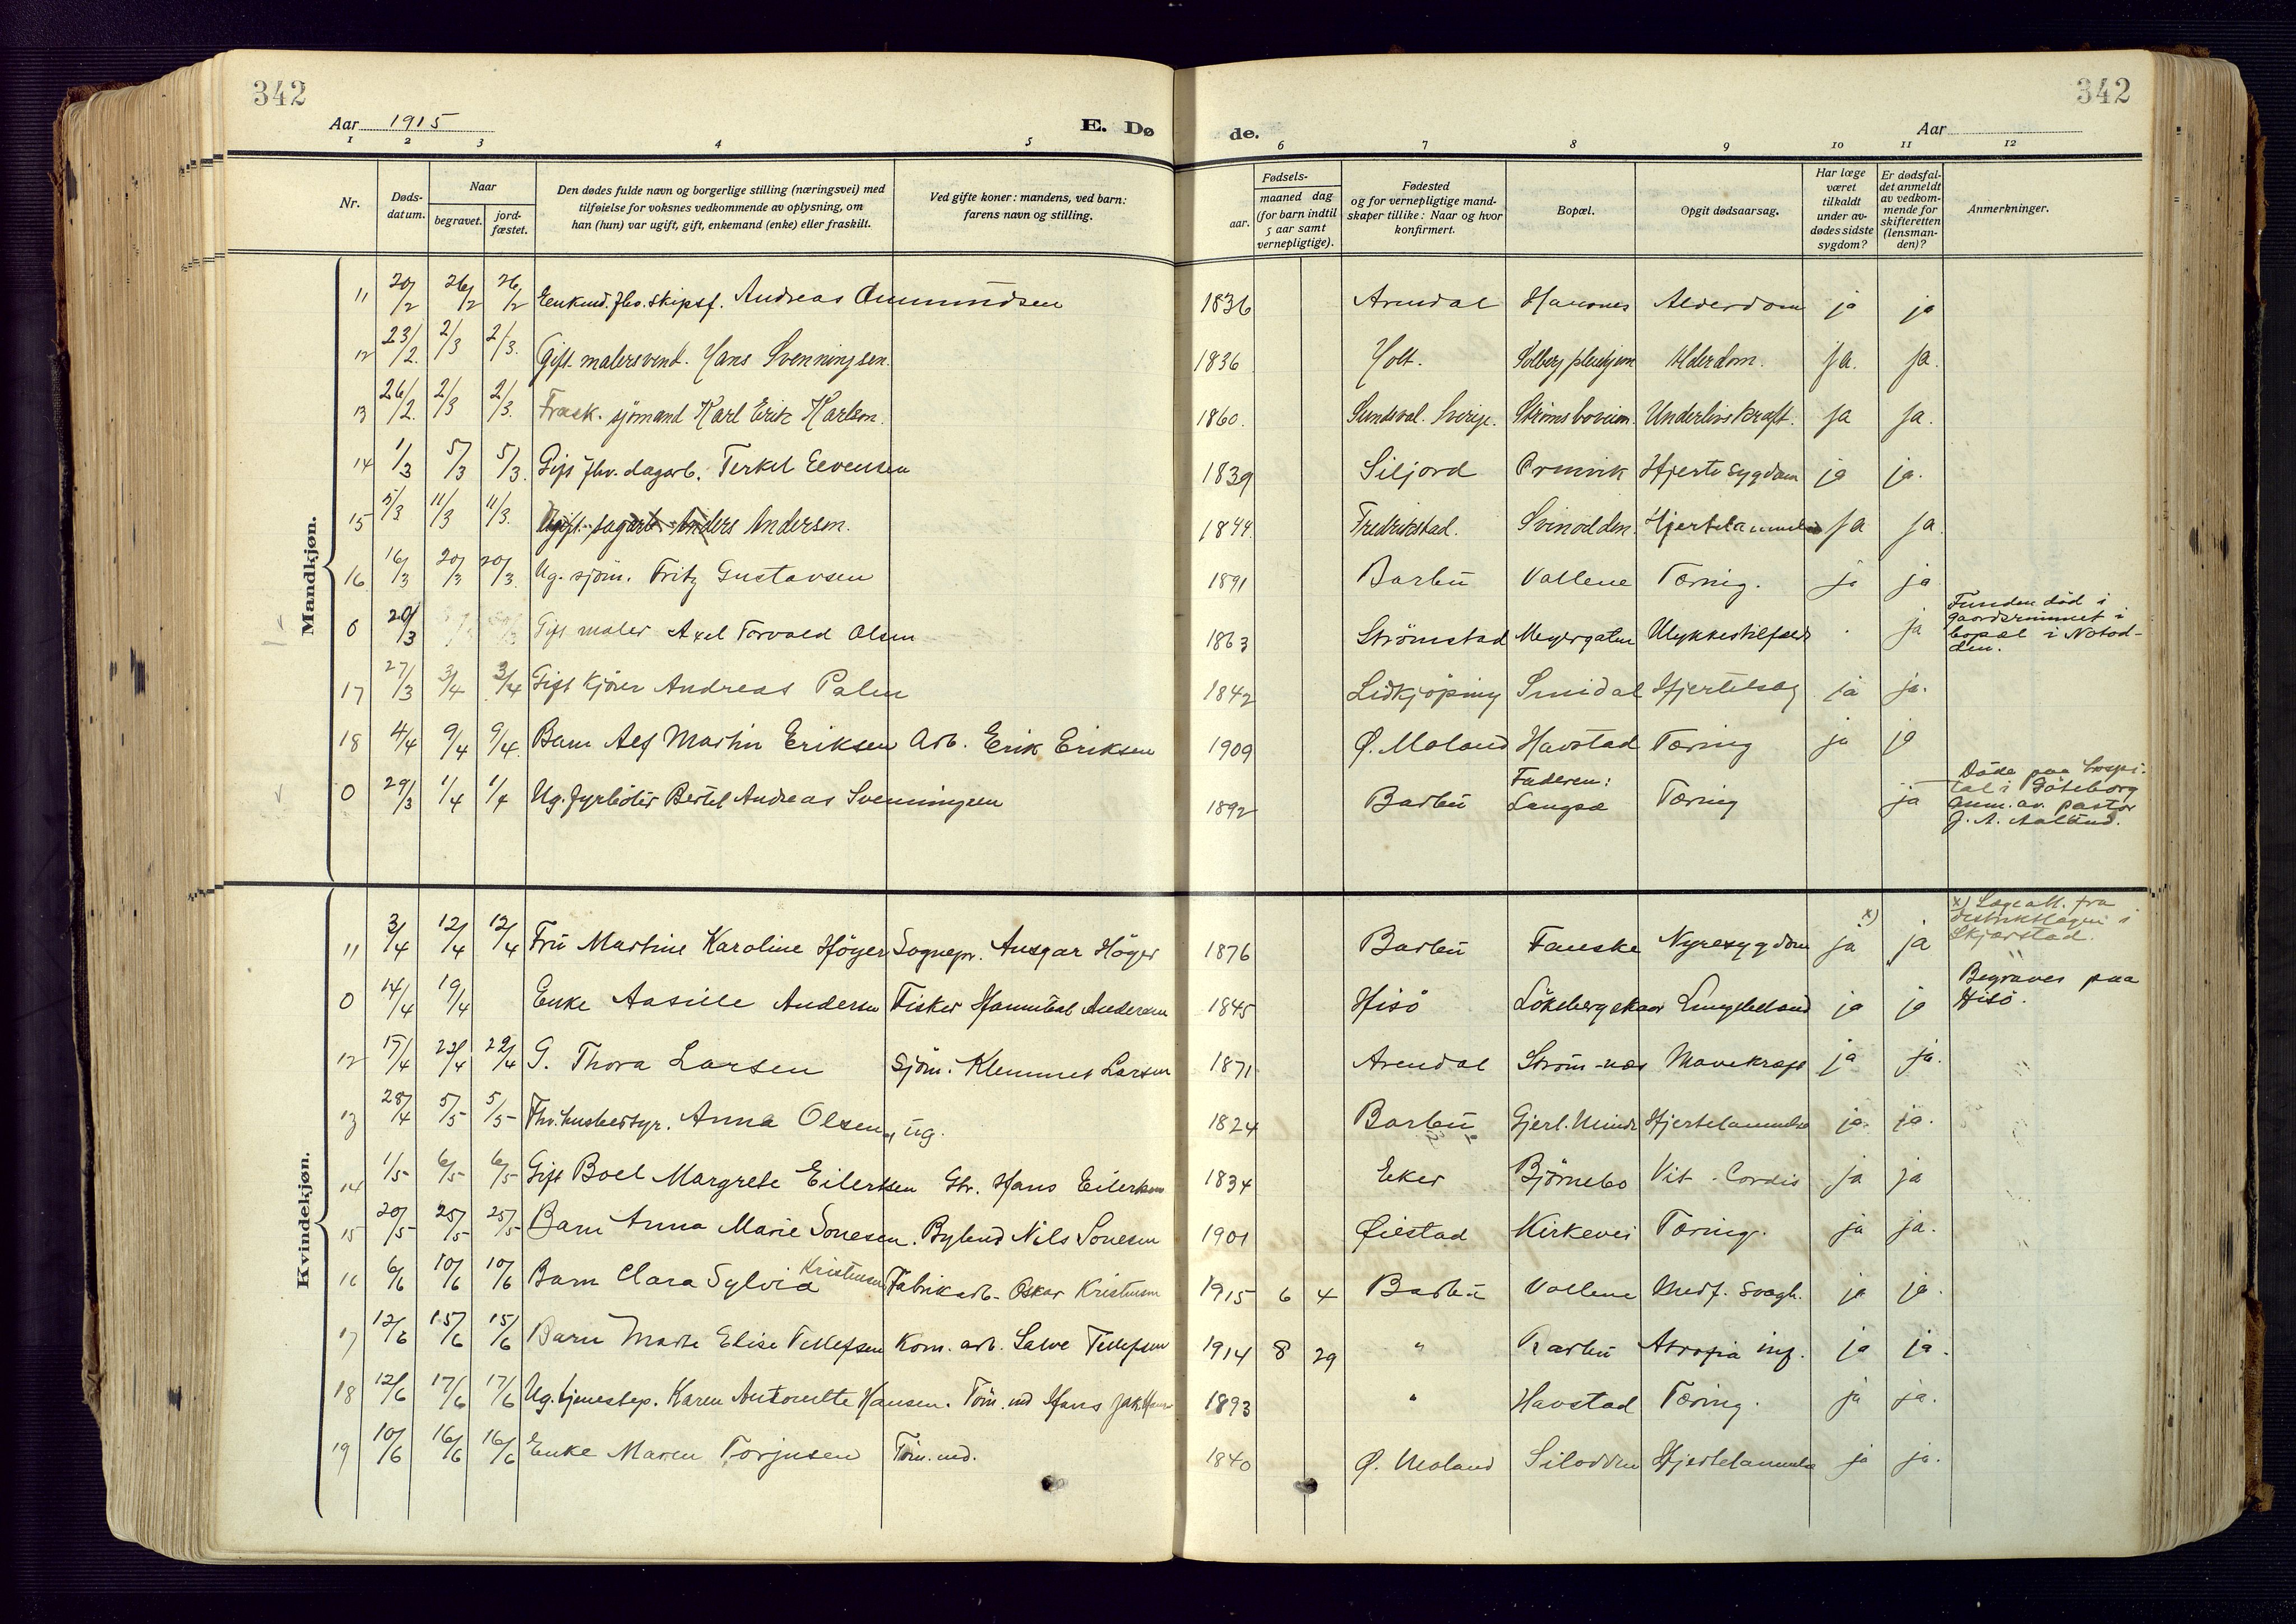 342
342
Aar 1915
E. Dø de.
Aar
1 2 3 4 5 6 7 8 9 10 11 12
Nr.
Døds-datum.
Naar
begravet. jord-fæstet.
Den dødes fulde navn og borgerlige stilling (næringsvei) med
tilføielse for voksnes vedkommende av oplysning, om
han (hun) var ugift, gift, enkemand (enke) eller fraskilt.
Ved gifte koner: mandens, ved barn:
farens navn og stilling.
Fødsels-
aar. maaned dag
(for barn indtil
5 aar samt
vernepligtige).
Fødested
og for vernepligtige mand-
skaper tillike: Naar og hvor
konfirmert.
Bopæl.
Opgit dødsaarsag.
Har læge
været
tilkaldt
under av-
dødes sidste
sygdom?
Er dødsfal-
det anmeldt
av vedkom-
mende for
skifteretten
(lensman-
den)?
Anmerkninger.
Mandkjøn.
11 20/2 26/2 26/2 Enkmd. fhv. skipsf. Andreas Ommundsen 1836 Arendal Havsnes Alderdom ja ja
12 23/2. 2/3 2/3. Gift malersvend. Hans Svenningsen. 1836 Holt. Solberg pleiehjem Alderdom. Ja. Ja.
13 26/2. 2/3 2/3. Frask. sjömand Karl Erik Karlson. 1860. Sundsval. Sverige. Strömsboveien. Underlivskræft. Ja Ja.
14 1/3 5/3 5/3. Gift fhv. dagarb. Terkel Eevensen 1839 Siljord Ormvik Hjertesygdom ja ja.
15 5/3 11/3 11/3. Ugift sagarb. Anders Anderson. 1844. Fredrikstad. Svinodden. Hjertelammelse Ja Ja.
16 16/3 20/3 20/3. Ug. sjöm. Fritz Gustavsen 1891 Barbu Vollene Tæring. ja ja
0 20/3 Gift maler Axel Torvald Olsen 1863 Strömstad Meyergaten Ulykkestilfælde ja Funden död i
gaardsrummet i
bopæl i Notod-
den.
17 27/3 3/4 3/4 Gift kjörer Andreas Palm 1842 Lidkjöping Smidal Hjerteslag ja ja.
18 4/4 9/4 9/4. Barn Alf Martin Eriksen Arb. Erik Eriksen 1909 Ø. Moland Havstad Tæring ja ja
0 29/3 1/4 1/4 Ug. fyrböter Bertel Andreas Svenningsen 1892 Barbu Faderen:
Langsæ Tæring ja Döde paa hospi-
tal i Göteborg
anm. av. pastor
J. A. Aalund.
Kvindekjøn.
11 3/4 12/4 12/4 Fru Martine Karoline Höyer Sognepr. Ansgar Höyer 1876 Barbu Fauske Nyresygdom ja x) ja x) Lægeatt. fra
distriktslægen i
Skjærstad.
0 14/4 19/4 Enke Aasille Andersen Fisker Hannibal Andersen 1845 Hisö Lökebergskaar Lungebetænd ja ja Begraves paa
Hisö.
12 17/4 22/4 22/4 G. Thora Larsen Sjöm. Klemmet Larsen 1871 Arendal Ström-næs Mavekræft ja ja.
13 28/4 5/5 5/5 Fhv. husbestyr. Anna Olsen, ug. 1824 Barbu Gjerl. Minde Hjertelammelse ja. ja.
14 1/5 6/5 6/5 Gift Boel Margrete Eilertsen Gbr. Hans Eilertsen 1834 Eker Björnebo Vit. Cordis ja ja
15 20/5 25/5 25/5 Barn Anna Marie Sonesen. Bybud Nils Sonesen 1901 Øiestad Kirkevei Tæring. ja ja.
16 6/6 10/6 10/6 Barn Clara Sylvia Kristensen Fabrikarb. Oskar Kristensen 1915 6 4 Barbu Vollene Medf. svagh. ja ja.
17 12/6 15/6 15/6 Barn Marte Elise Tellefsen Kom. arb. Salve Tellefsen 1914 8 29 " Barbu Atrofia inf. ja ja.
18 12/6 17/6 17/6 Ug. tjenestep. Karen Antonette Hansen. Töm. md Hans Jak. Hansen 1893 " Havstad Tæring. ja ja.
19 10/6 16/6 16/6 Enke Maren Torjusen Töm. md. 1840 Ø. Moland Silodden Hjertelammelse ja ja.